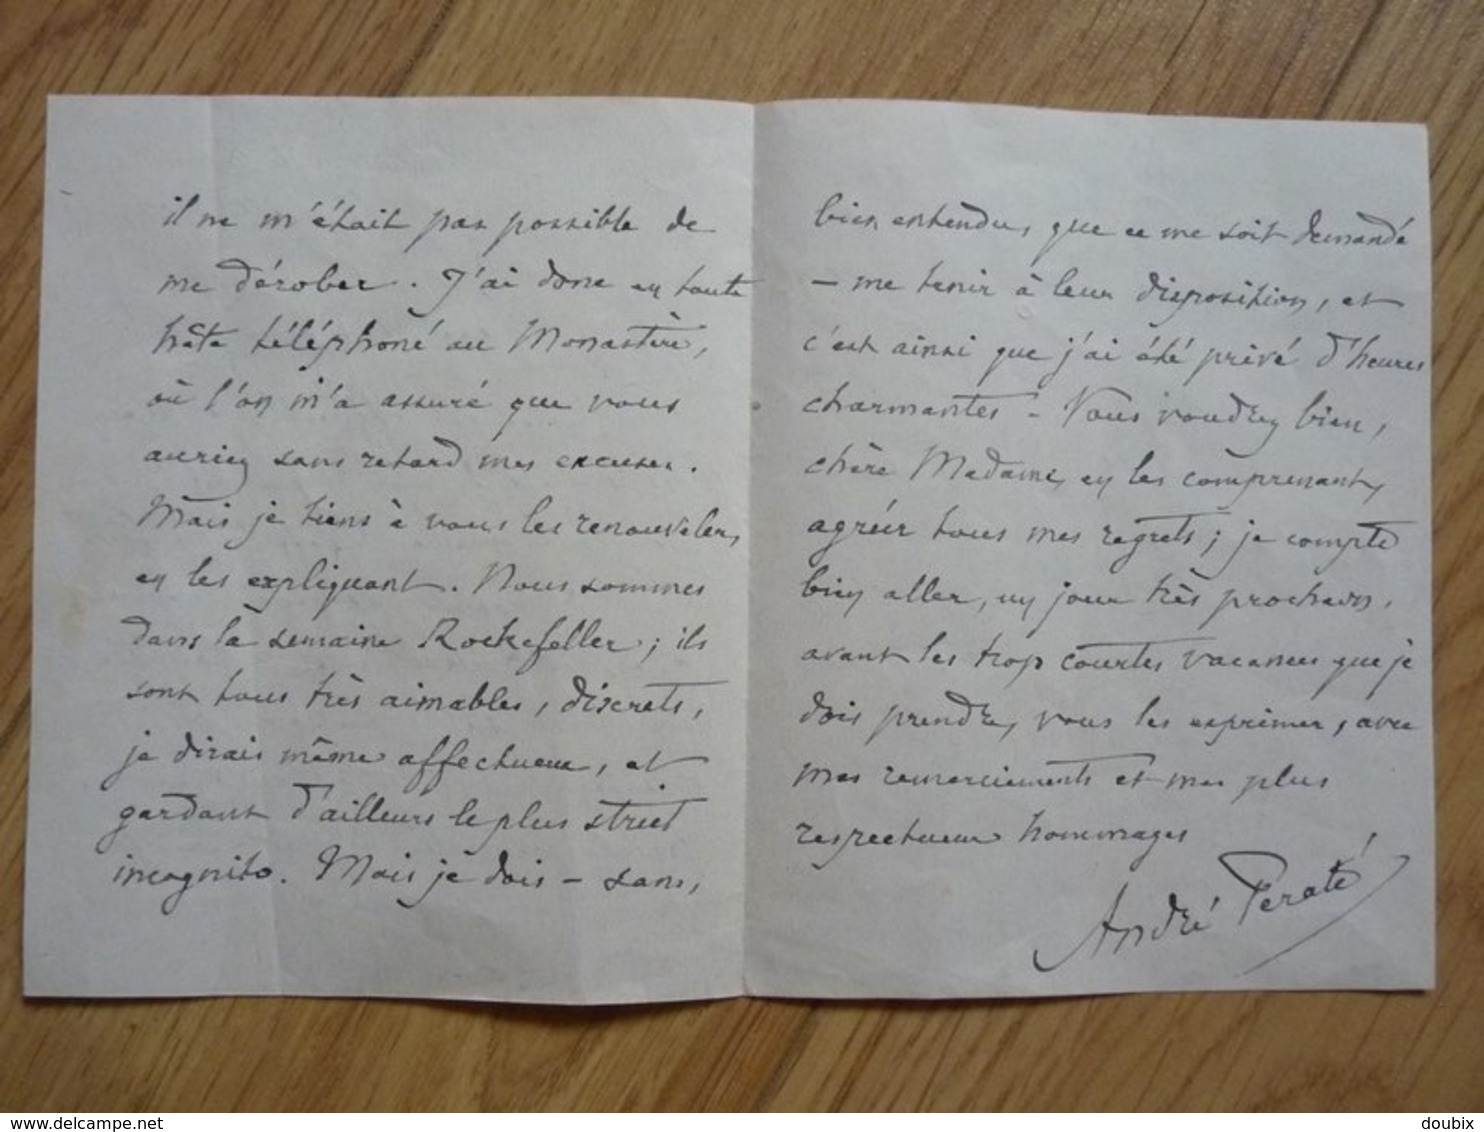 il ne m'était pas possible de
me dérober. J'ai donc en toute
hâte téléphoné au Monastère,
où l'on m'a assuré que vous
auriez sans retard mes excuses.
Mais je tiens à vous les renouveler,
en les expliquant. Nous sommes
dans la semaine Rockefeller ; ils
sont tous très aimables, discrets,
je dirais même affectueux, et
gardant d'ailleurs le plus strict
incognito. Mais je dois – sans,
bien entendu, que ce me soit demandé
– me tenir à leur disposition, et
c'est ainsi que j'ai été privé d'heures
charmantes – Vous voudrez bien,
chère Madame, en les comprenant,
agréer tous mes regrets ; je compte
bien aller, un jour très prochain,
avant les trop courtes vacances que je
dois prendre, vous les exprimer, avec
mes remerciements et mes plus
respectueux hommages
André Peraté
www.delcampe.net
doubix